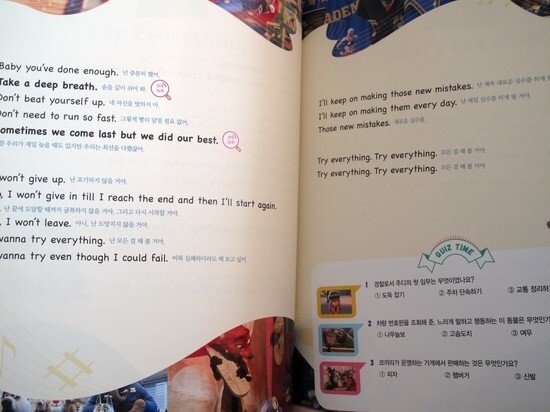 ADEM
Baby you've done enough. 난 충분히 했어.
Take a deep breath. 숨을 깊이 쉬어 봐.
Don't beat yourself up. 네 자신을 탓하지 마.
Don't need to run so fast. 그렇게 빨리 달릴 필요 없어.
Sometimes we come last but we did our best.
우리가 제일 늦을 때도 있지만 우리는 최선을 다했잖아.
won't give up. 난 포기하지 않을 거야.
I won't give in till I reach the end and then I'll start again.
난 끝에 도달할 때까지 굴복하지 않을 거야, 그리고 다시 시작할 거야.
, I won't leave. 아니, 난 도망치지 않을 거야.
wanna try everything. 난 모든 걸 해 볼 거야.
wanna try even though I could fail. 비록 실패하더라도 해 보고 싶어.
I'll keep on making those new mistakes. 난 계속 새로운 실수를 하게 될
I'll keep on making them every day. 난 매일 실수를 하게 될 거야.
Those new mistakes. 새로운 실수를.
Try everything. Try everything. 모든 걸 해 볼 거야.
Try everything. Try everything. 모든 걸 해 볼 거야.
QUIZ TIME
1 경찰로서 주디의 첫 임무는 무엇이었나요?
① 도둑 잡기 ② 주차 단속하기 ③ 교통 정리하
2 차량 번호판을 조회해 준, 느리게 말하고 행동하는 이 동물은 무엇인가
① 나무늘보 ② 고슴도치 ③ 여우
3 코끼리가 운영하는 가게에서 판매하는 것은 무엇인가요?
① 피자 ② 햄버거 ③ 신발